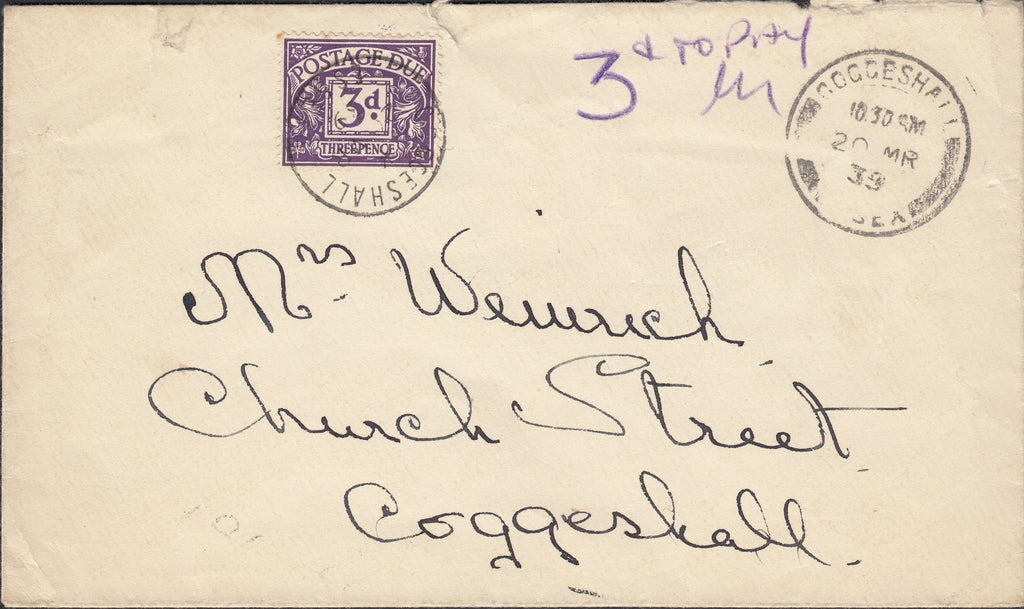 POSTAGE DUE
3d.
THREEPENCE
COGGESHALL
3d TO PAY
COGGESHALL
10.30 AM
20 MR
39
Mrs Weinrich
Church Street
Coggeshall.